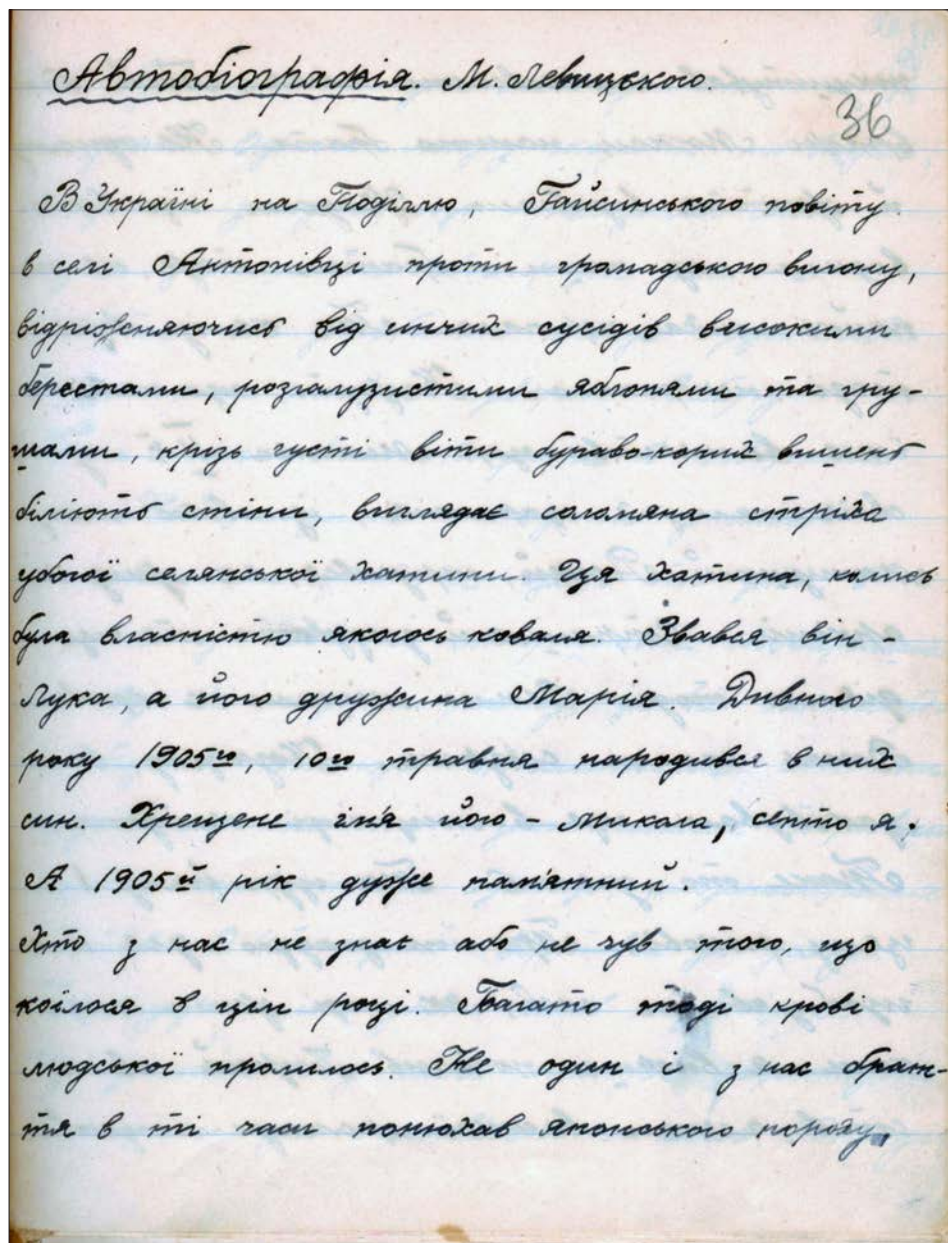 Автобіографія. М. Левицького.
36
В Україні на Поділлю, Гайсинського повіту
в селі Антонівці проти громадського вигону,
відріжняючись від инчих сусідів високими
берестами, розгалузистими яблонями та гру-
шами, крізь густі віти бураво-корих вишень
біліють стіни, виглядає соломяна стріха
убогої селянської хатини. Ця хатина, колись
була власністю якогось коваля. Звався він -
Лука, а його дружина Марія. Дивного
року 1905го, 10го травня народився в них
син. Хрещене імя його - Микола, септо я.
А 1905й рік дуже пам'ятний.
Хто з нас не знає або не чув того, що
коїлося в цім році. Багато тоді крові
людської пролилось. Не один і з нас брат-
тя в ті часи понюхав японського пороху,